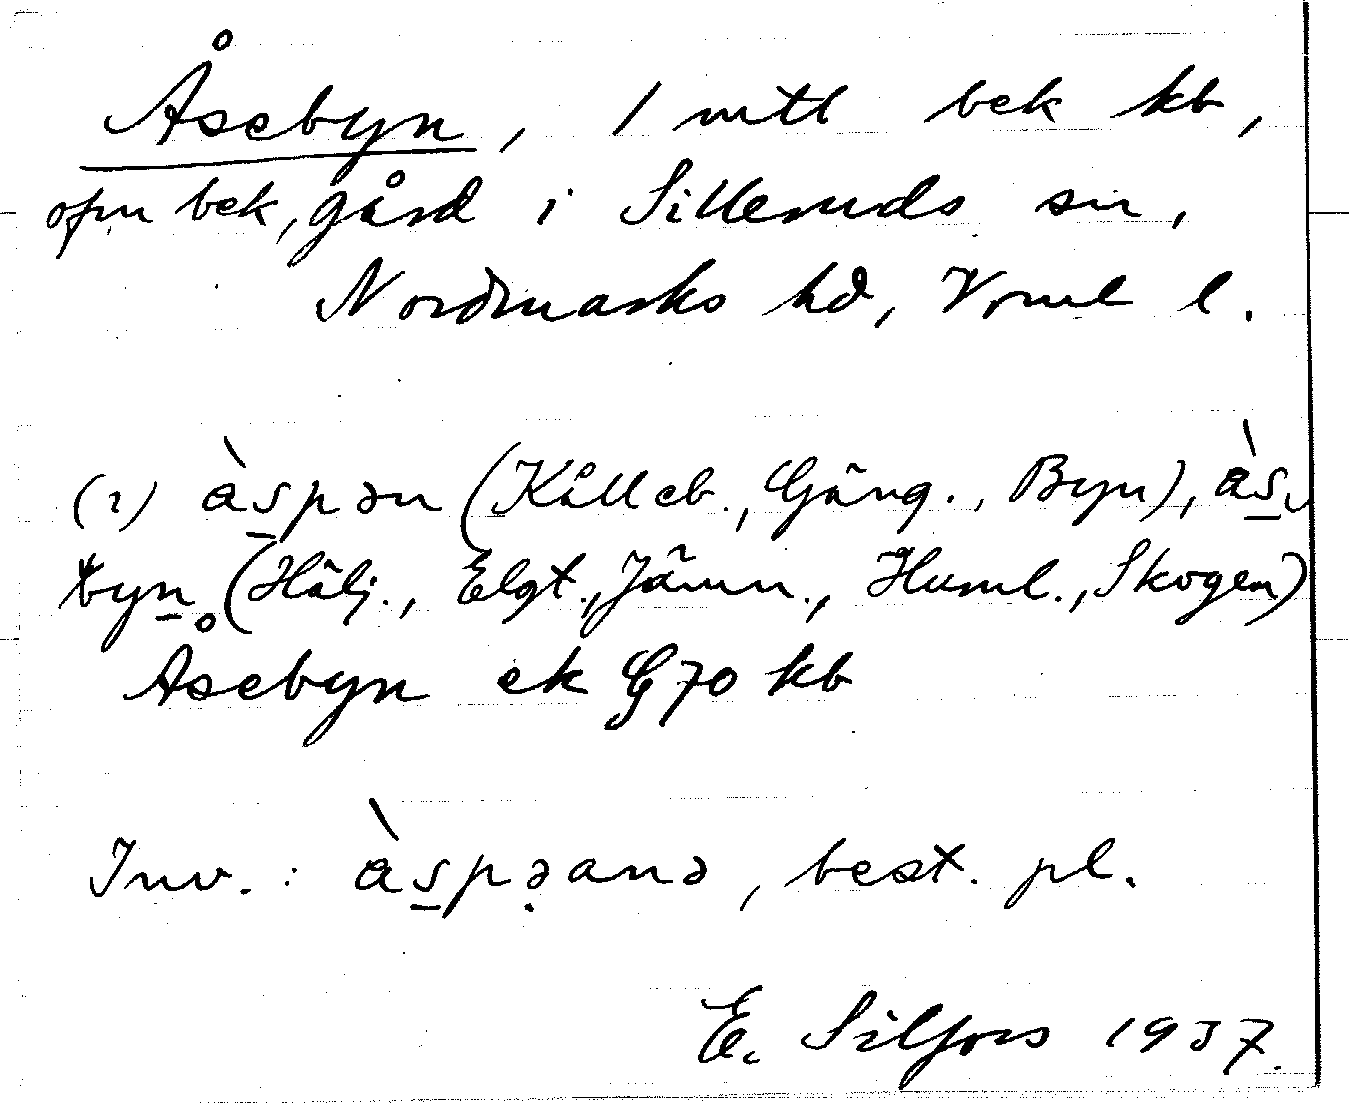 Åsebyn, 1 mtl bek kb,
ofvn bek, gård i Silleruds sn,
Nordmarks hd, Vrml l.
(1) àspən (Kålleb., Gäng., Byn), às-
byn (Hälj., Elgt., Jämn., Huml., Skogen)
Åsebyn ek G70 kb
Inv.: àspəanə, best. pl.
E. Silfors 1937.